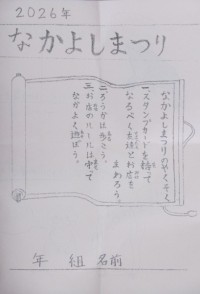 2026年
なかよしまつり
なかよしまつりのやくそく
一スタンプカードを持って
なるべく友達とお店を
まわろう。
二ろうかは歩こう。
三お店のルールは守って
なかよく遊ぼう。
年 組 名前